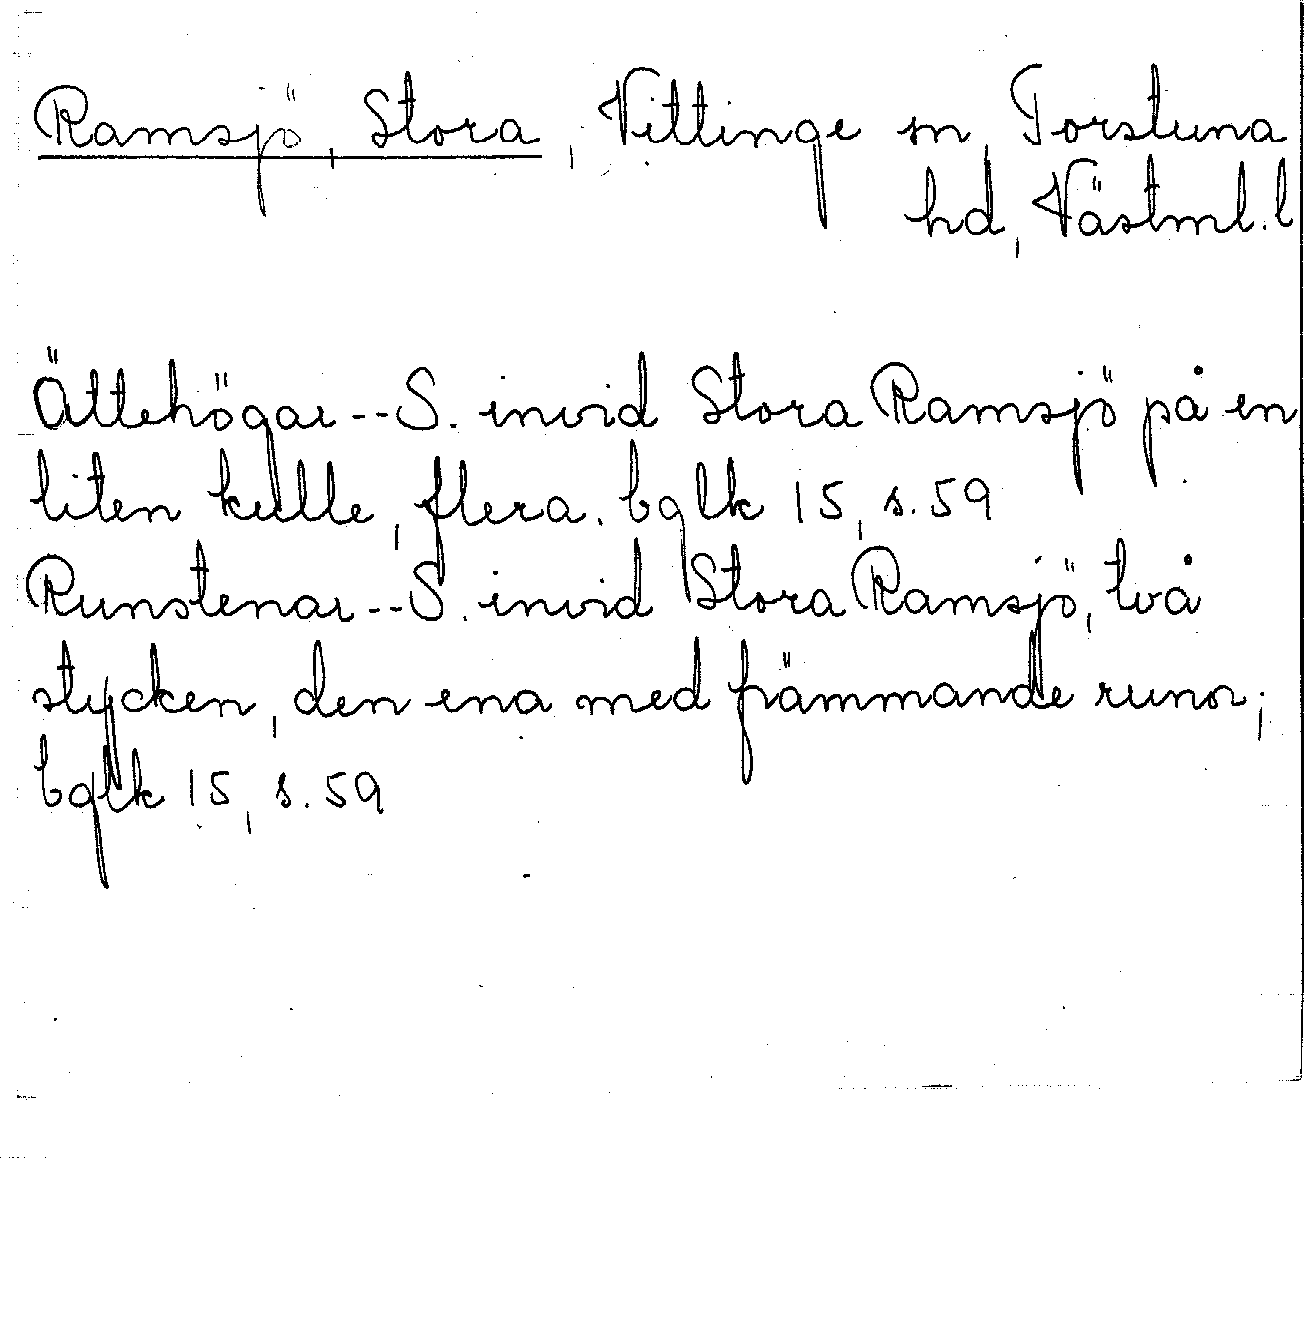 Ramsjö, Stora, Vittinge sn, Torstuna
hd, Västml.l
Ättehögar--S. invid Stora Ramsjö på en
liten kulle, flera. bglk 15, s. 59
Runstenar--S. invid Stora Ramsjö, två
stycken, den ena med främmande runor;
bglk 15, s. 59